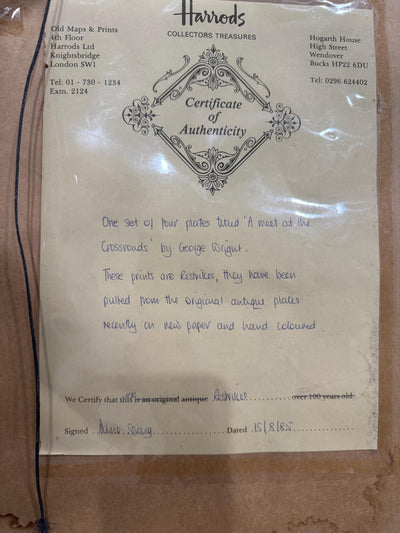 Harrods
COLLECTORS TREASURES
Old Maps & Prints
4th Floor
Harrods Ltd
Knightsbridge
London SW1
Tel: 01 - 730 - 1234
Extn. 2124
Hogarth House
High Street
Wendover
Bucks HP22 6DU
Tel: 0296 624402
Certificate
of
Authenticity
One set of four plates titled 'A meet at the
Crossroads' by George Wright.
These prints are Restrikes, they have been
pulled from the original antique plates
recently on new paper and hand coloured.
We Certify that this is an original antique Restrike over 100 years old.
Signed Dated 15/8/85